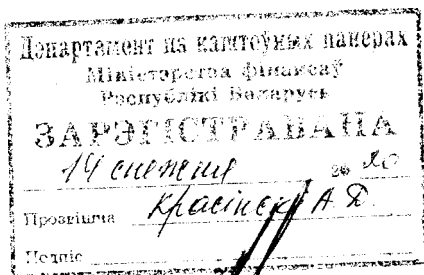 Дэпартамент па каштоўных паперах
Міністэрства фінансаў
Рэспублікі Беларусь
ЗАРЭГІСТРАВАНА
14 снежня 2020
Прозвішча Красінскі А. Д.
Подпіс